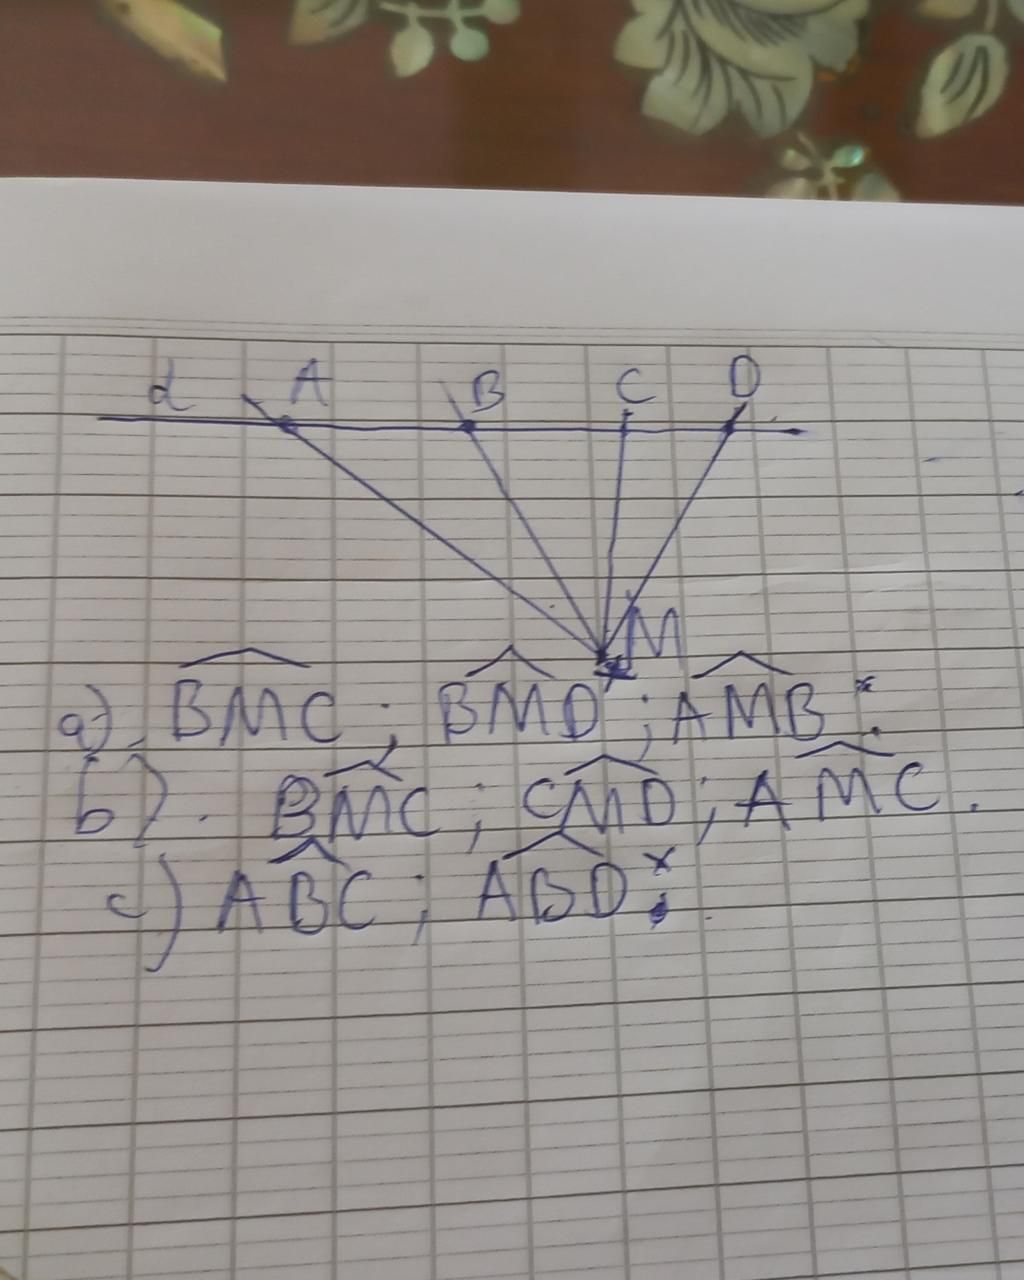 d A B C D
M
a). \widehat{BMC} ; \widehat{BMD} ; \widehat{AMB} .
b). \widehat{BMC} ; \widehat{CMD} ; \widehat{AMC} .
c) \widehat{ABC} ; \widehat{ABD} ;